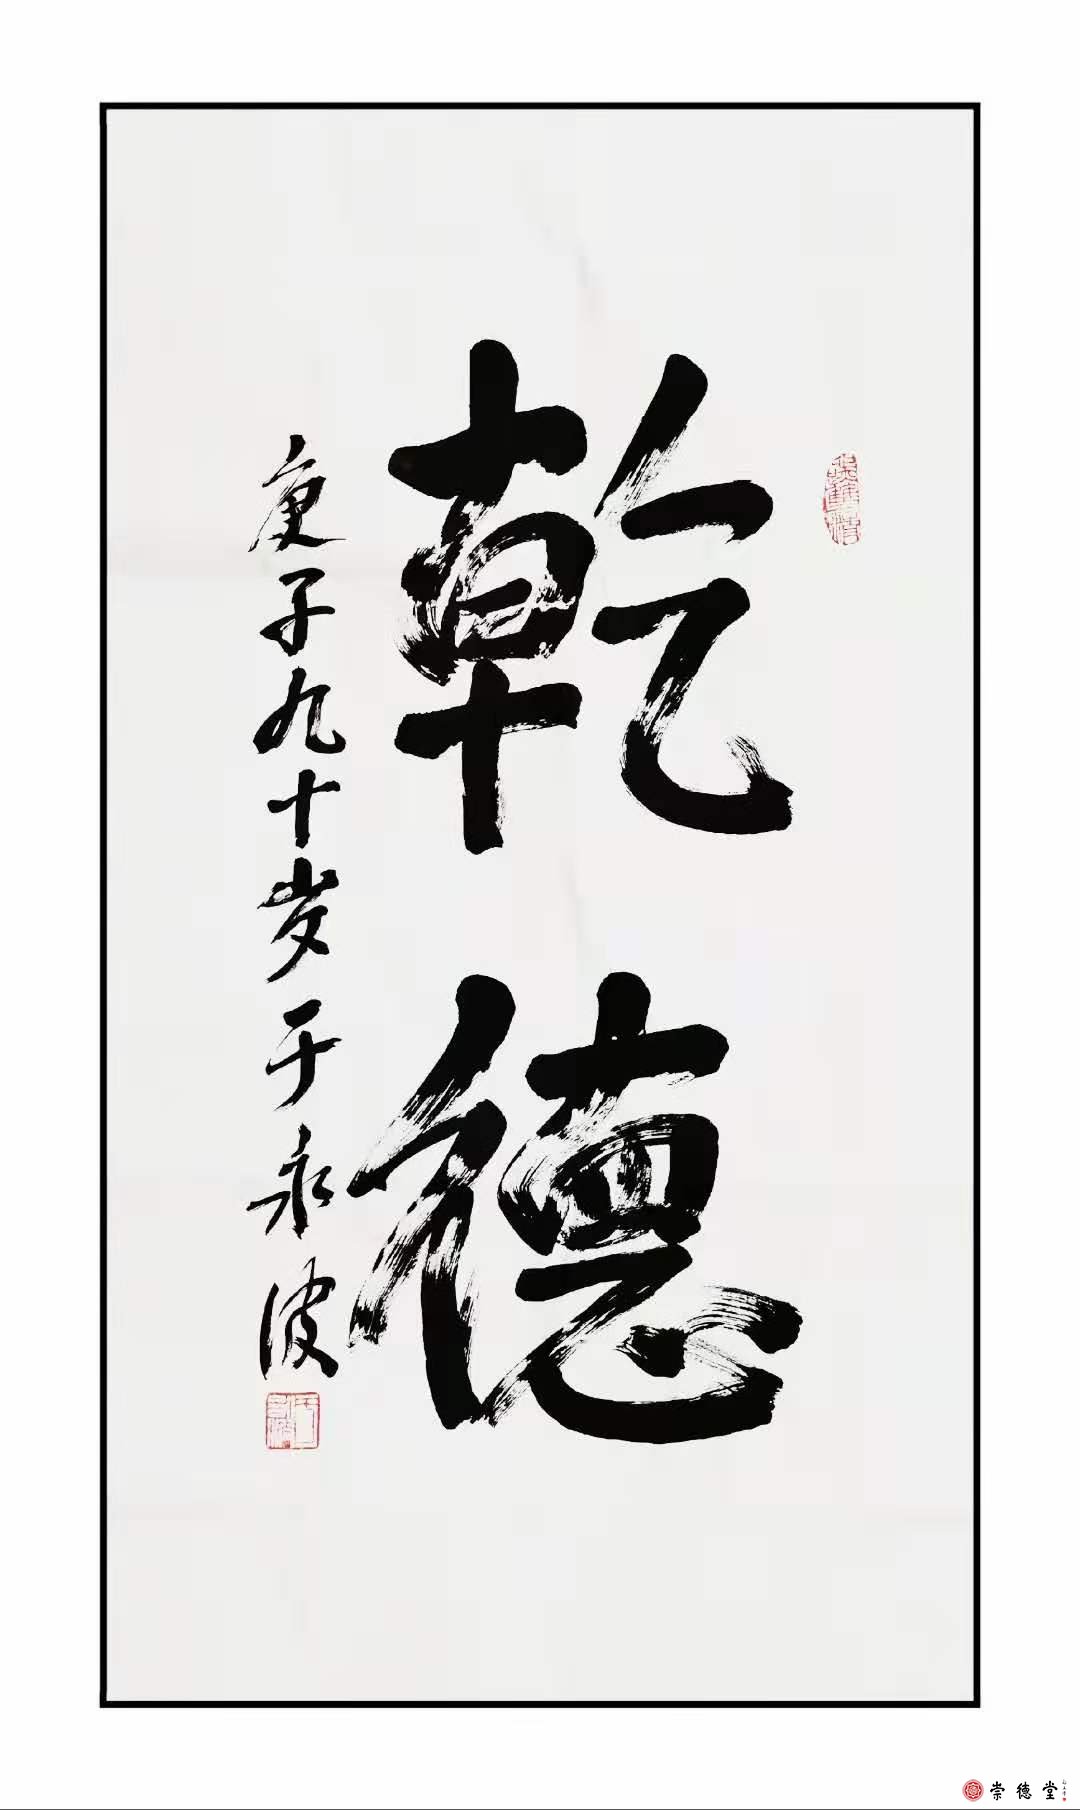 乾德
庚子九十岁于永波
崇德堂